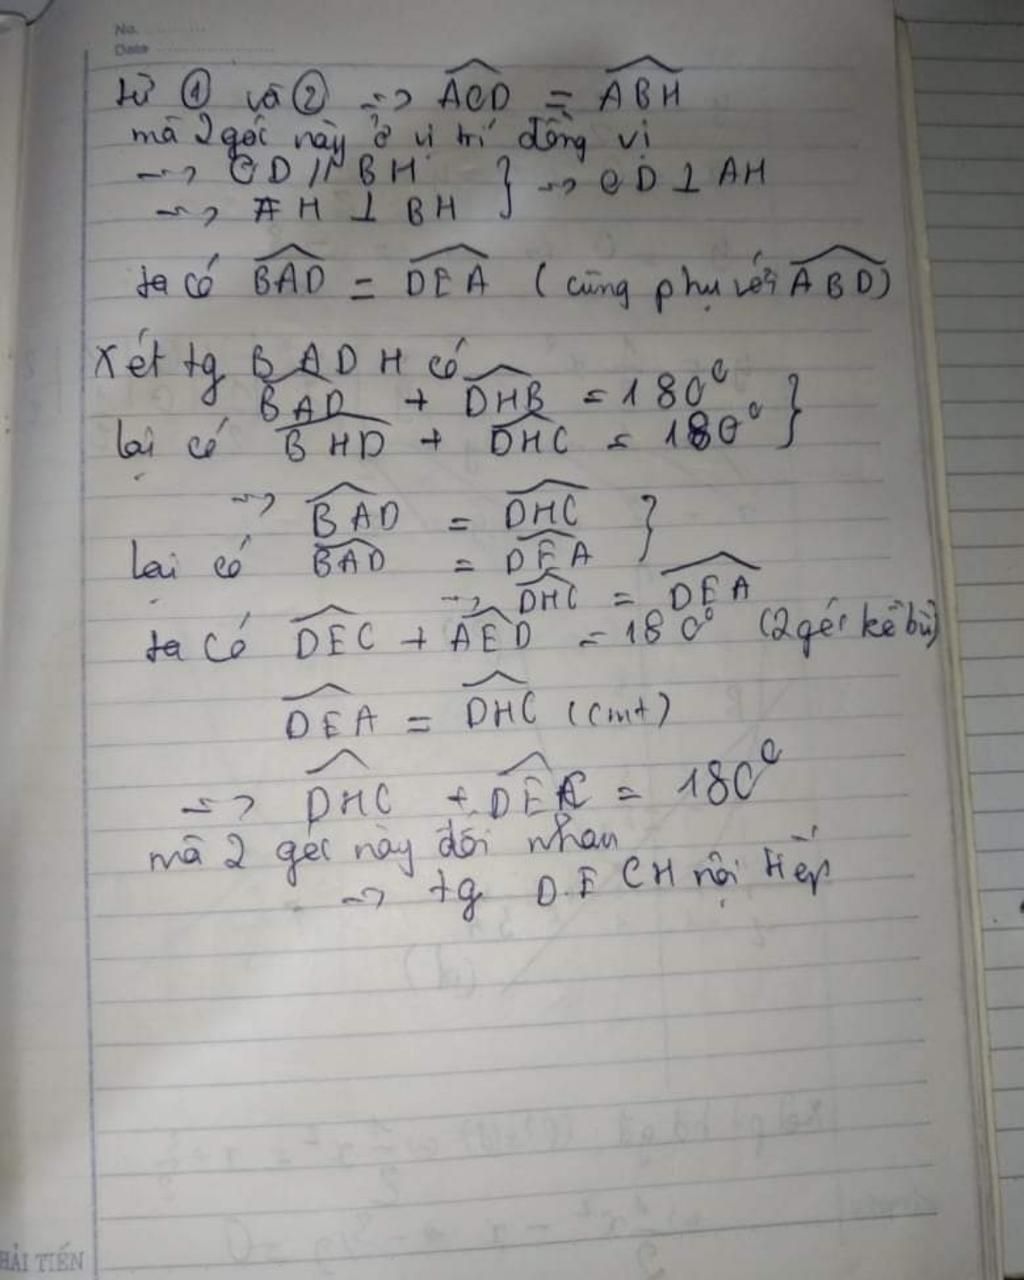 No.
Date
từ ① và ② => ACD = ABH
mà 2 góc này ở vị trí đồng vị
=> CD // BH } => CD ⊥ AH
=> AH ⊥ BH
ta có BAD = DEA (cùng phụ với ABD)
Xét tg BADH có
BAD + DHB = 180° }
lại có BHD + DHC = 180°
=> BAD = DHC }
lại có BAD = DEA
=> DHC = DEA
ta có DEC + AED = 180° (2 góc kề bù)
DEA = DHC (cmt)
=> DHC + DEC = 180°
mà 2 góc này đối nhau
=> tg DECH nội tiếp
HẢI TIẾN